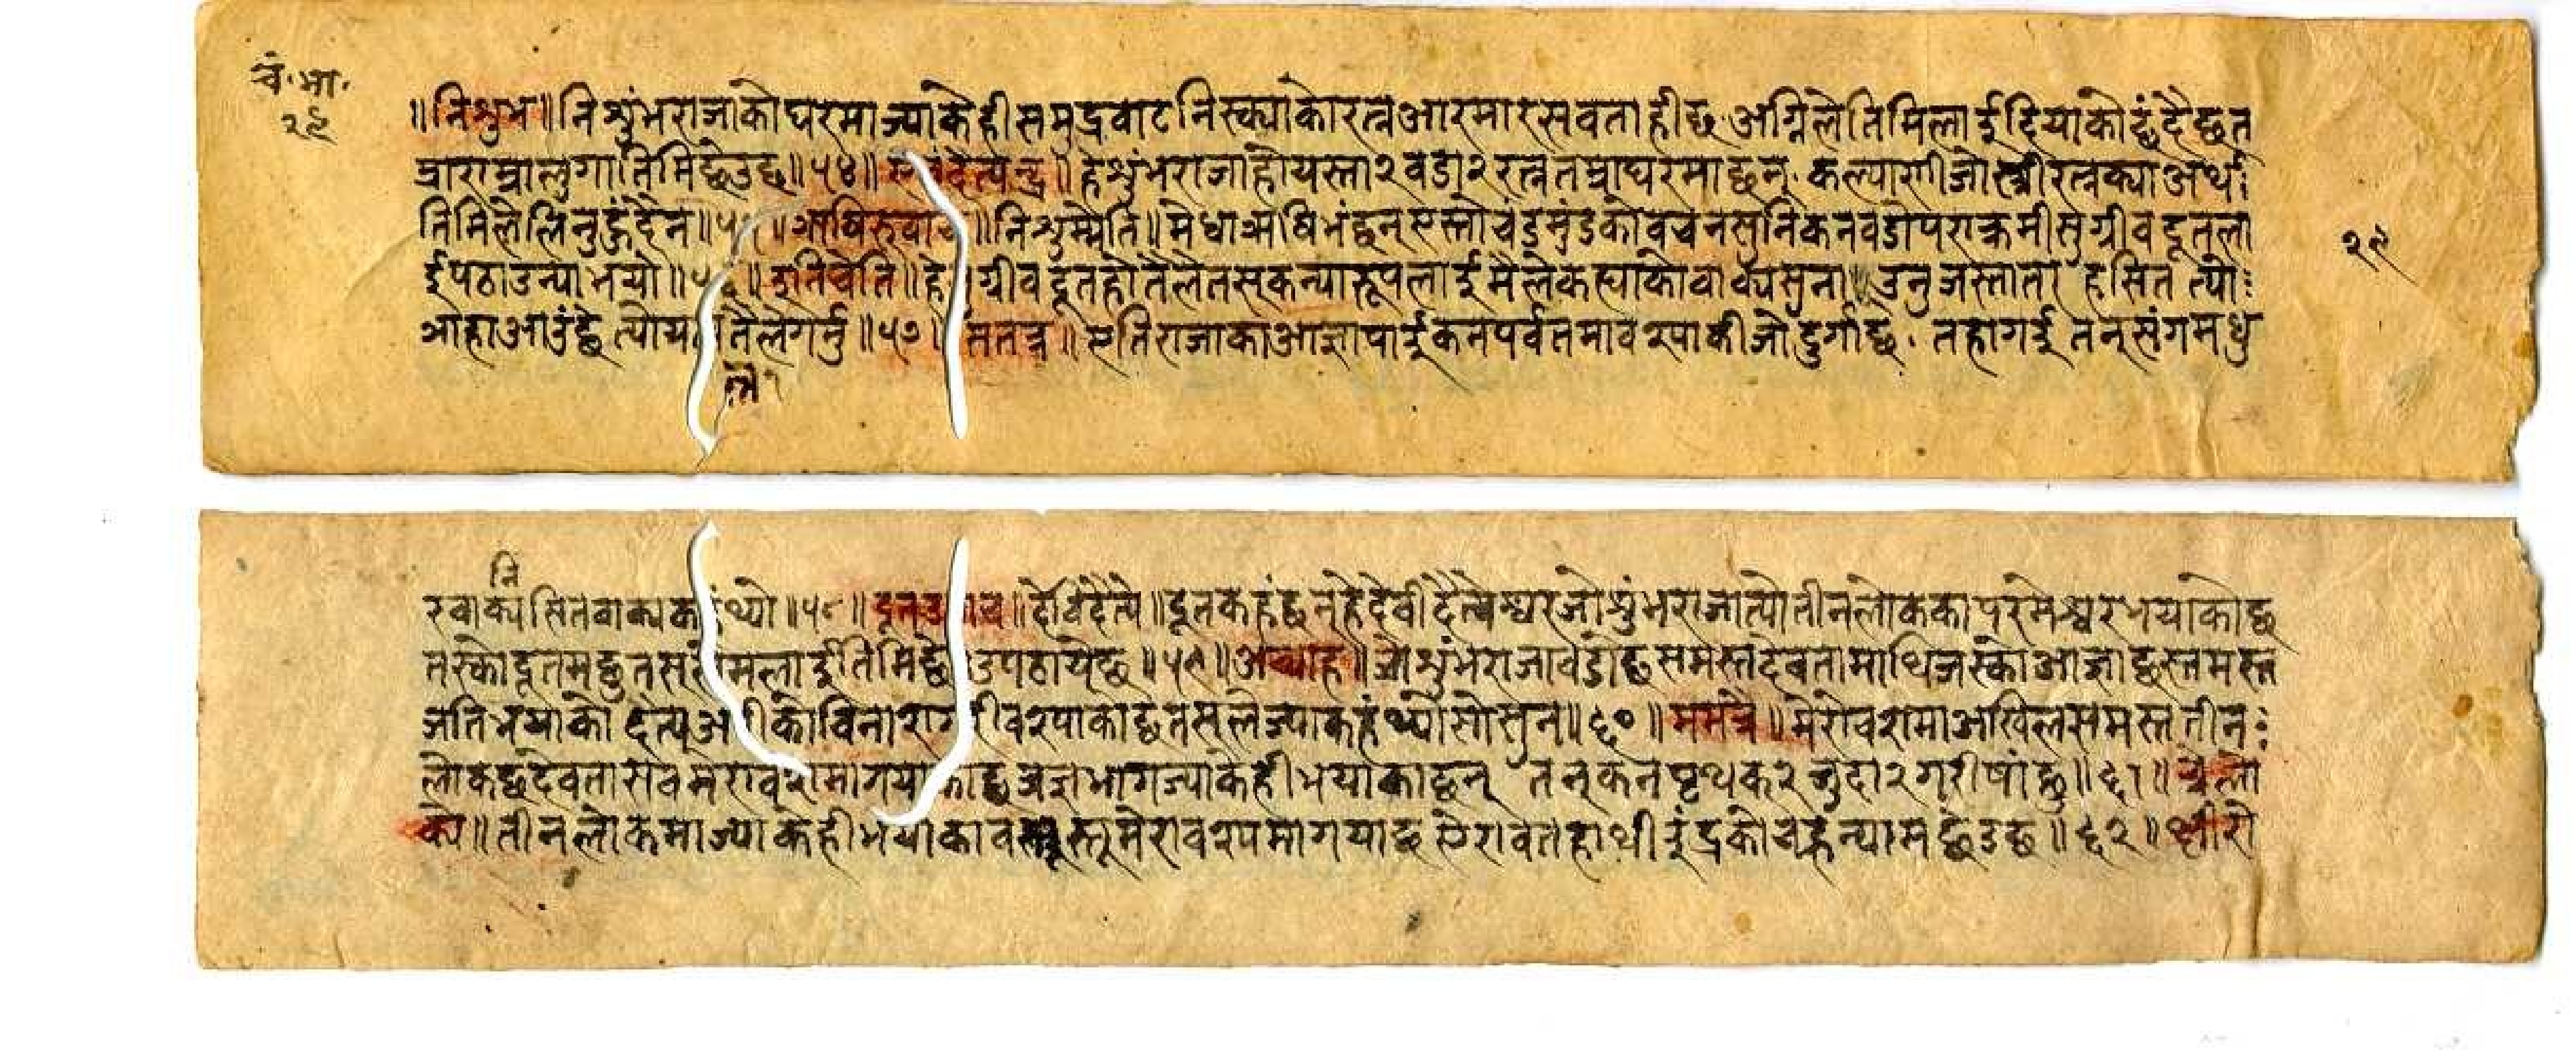 चं.भा.
२९
॥निशुंभ॥निशुंभराजाकोघरमाज्याकेहीसमुद्रबाटनिस्क्याकोरत्नआरमारसबताहीछ.अग्निलेतिमिलाईदियाकोहुंदैछत
म्रालुगातिमिछेउछ॥५४॥ दैत्यन्द्र॥हेशुंभराजाहोयस्ता२बडा२रत्नतम्राघरमाछन्.कल्याणीजोस्त्रीरत्नक्याअर्थ
तिमिलेलिनुहुंदैन॥ ॥ऋषिरुवाच॥निशुम्भेति॥मेधाऋषिभंछन्एस्तोचंडमुंडकोवचनसुनिकनबडोपराक्रमीसुग्रीवदूतला
२९
ईपठाउन्याभयो॥ ॥इतिचेति॥हे ग्रीवदूतहोतैलेतसकन्यारूपलाईमैलेकह्याकोवाक्यसुना॥उनुजस्ता हसित त्यो
आहाआउंछे तैलेगर्नु॥५७॥ ततत्र॥एतिराजाकाआज्ञापाईकनपर्वतमाबस्याकीजोदुर्गाछ.तहागईतनसंगमधु
नि
रवाक्यसितवाक्यक थ्यो॥५८॥दूतउवाच॥देविदैत्ये॥दूतकहंछन्हेदेवीदैत्येश्वरजोशुंभराजात्योतीनलोककापरमेश्वरभयाकोछ
तस्कोदूतमछुतस मलाईतिमिछे उपठायेछ॥५९॥अव्याह॥जोशुंभराजाबडोछसमस्तदेवतामाथिजस्कोआज्ञाछसमस्त
जतिभयाकोदैत्य कोविनारागरीबस्पाकाछतसलेज्याकहंथ्योसोसुन॥६०॥ममत्रै॥मेरोवशमाअखिलसमस्ततीन
लोकछदेवतासबमेरावशमागया छ यज्ञभागज्याकेहीभयाकाछन् तनकनपृथक२जुदा२गरीषांछु॥६१॥त्रैलो
क्य॥तीनलोकमाज्याकेहीभयाका मेरावश्यमागयाछ ऐरावतहाथीइंद्रकोचह्रन्यामछेउछ॥६२॥क्षीरो